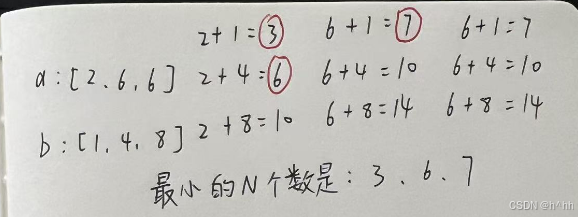 2+1=3 6+1=7 6+1=7
a:[2、6、6] 2+4=6 6+4=10 6+4=10
b:[1、4、8] 2+8=10 6+8=14 6+8=14
最小的N个数是：3、6、7
CSDN @h4hh